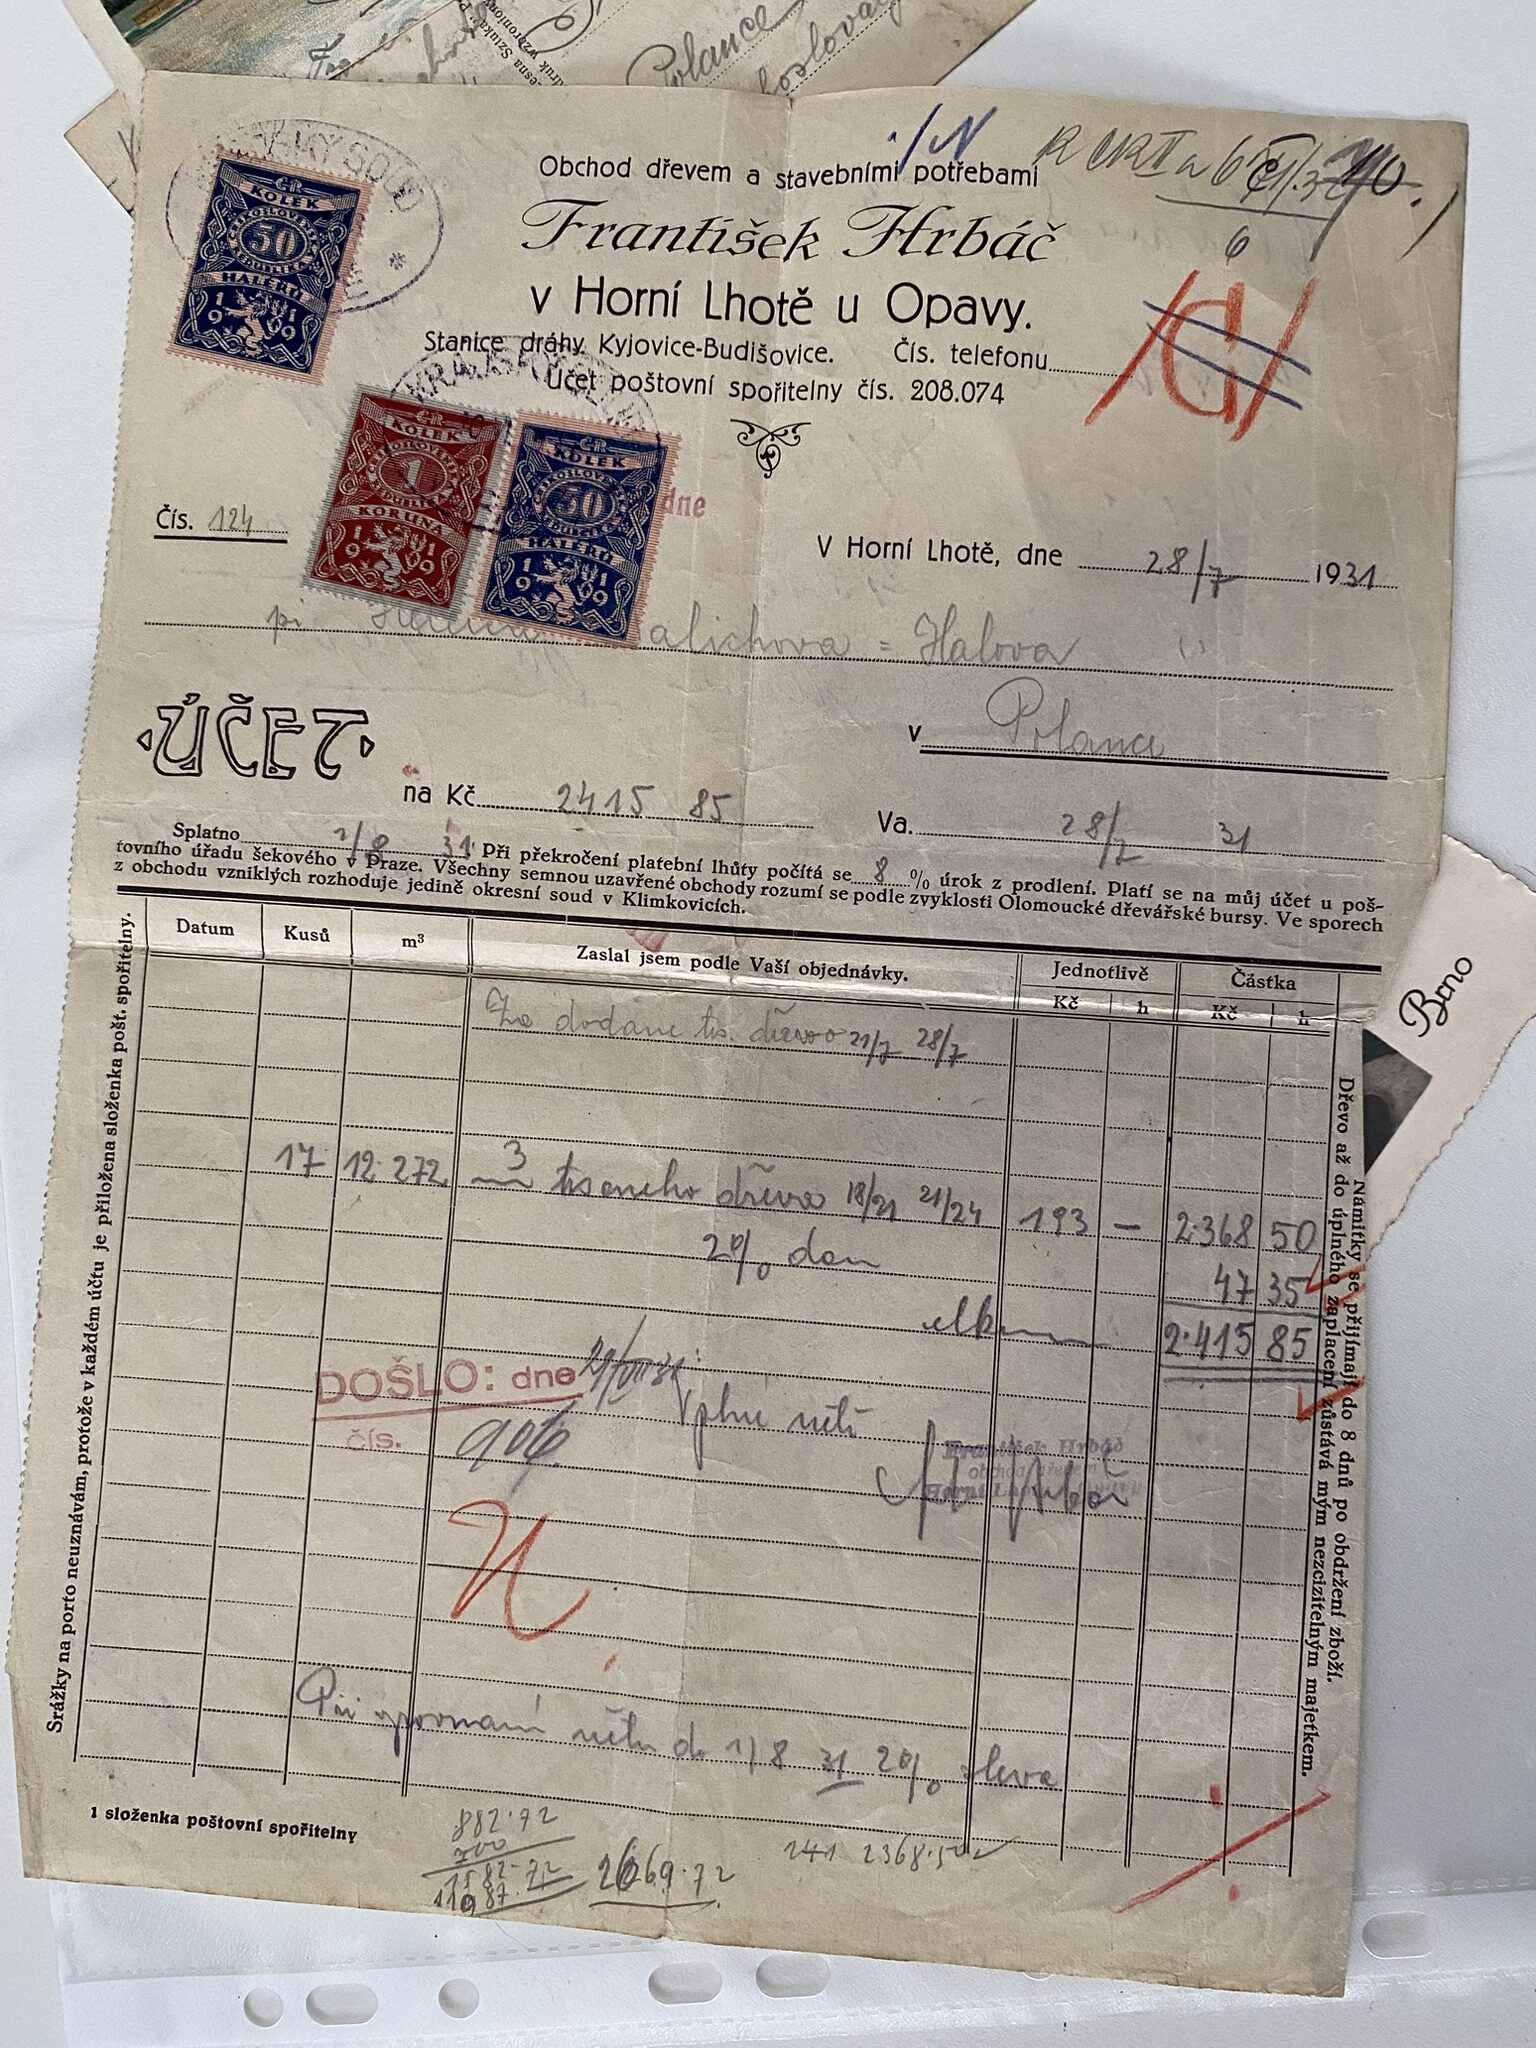 Polance
KRAJSKÝ SOUD
ČR
KOLEK
ČESKOSLOVENSKÁ
50
REPUBLIKA
HALÉŘŮ
1919
Obchod dřevem a stavebními potřebami
František Hrbáč
v Horní Lhotě u Opavy.
Stanice dráhy Kyjovice-Budišovice. Čís. telefonu
Účet poštovní spořitelny čís. 208.074
6
ČR
KOLEK
1
KORUNA
1919
ČR
KOLEK
50
HALÉŘŮ
1919
dne
Čís. 124
V Horní Lhotě, dne 28/7 1931
pí alichova = Halova
v Polanci
ÚČET
na Kč 2415 85
Va. 28/7 31
Splatno 1/8 31 Při překročení platební lhůty počítá se 8 % úrok z prodlení. Platí se na můj účet u poš-
tovního úřadu šekového v Praze. Všechny semnou uzavřené obchody rozumí se podle zvyklosti Olomoucké dřevářské bursy. Ve sporech
z obchodu vzniklých rozhoduje jedině okresní soud v Klimkovicích.
Datum Kusů m³ Zaslal jsem podle Vaší objednávky. Jednotlivě Částka
Kč h Kč h
Za dodané tes. dřevo 21/7 28/7
17 12.272 m3 teseneho dřeva 18/21 21/24 193 — 2.368 50
2% dan 47 35
2.415 85
DOŠLO: dne 29/VII 31
čís. 906
František Hrbáč
obchod dřevem
Při vyrovnaní učtu do 1/8 31 2% sleva
1 složenka poštovní spořitelny
882.72
700
1582.72
2669.72
241 2368.50
Srážky na porto neuznávám, protože v každém účtu je přiložena složenka pošt. spořitelny.
Námitky se přijímají do 8 dnů po obdržení zboží.
Dřevo až do úplného zaplacení zůstává mým nezcizitelným majetkem.
Brno